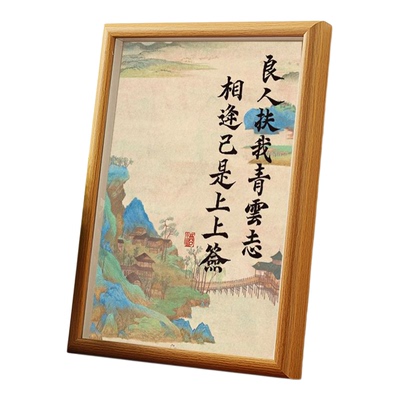 良人扶我青雲志
相逢已是上上簽